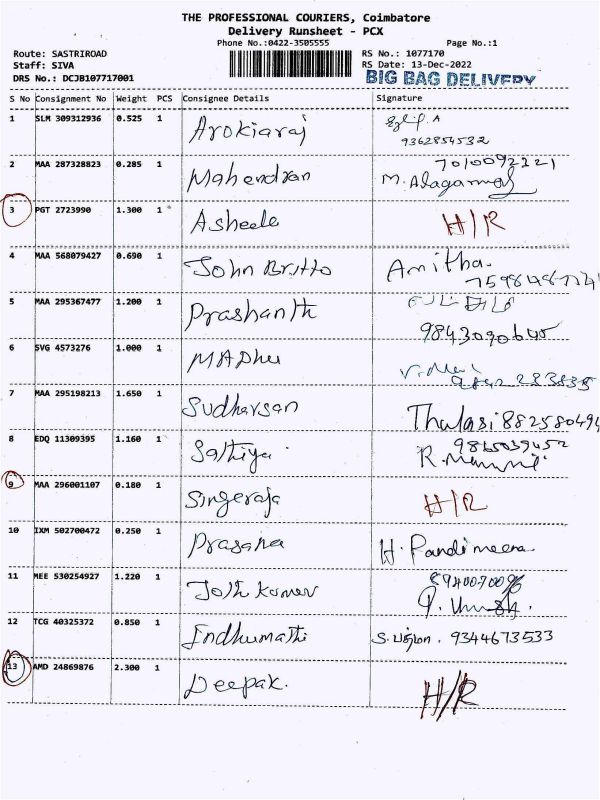 THE PROFESSIONAL COURIERS, Coimbatore
Delivery Runsheet - PCX
Phone No.:0422-3505555 Page No.:1
Route: SASTRIROAD RS No.: 1077170
Staff: SIVA RS Date: 13-Dec-2022
DRS No.: DCJB107717001 BIG BAG DELIVERY
S No Consignment No Weight PCS Consignee Details Signature
1 SLM 309312936 0.525 1 Arokiaraj
9362854532
2 MAA 287328823 0.285 1 Mahendran 7010092221
3 PGT 2723990 1.300 1 Asheela H/R
4 MAA 568079427 0.690 1 John Britto Amitha.
5 MAA 295367477 1.200 1 Prashanth
6 SVG 4573276 1.000 1 MADhu
7 MAA 295198213 1.650 1 Sudharsan Thulasi 882580494
8 EDQ 11309395 1.160 1 Sathiya
9 MAA 296001107 0.180 1 Singeraja H/R
10 IXM 502700472 0.250 1 Prasana H. Pandimeena
11 MEE 530254927 1.220 1
12 TCG 40325372 0.850 1 Indhumathi 9344673533
13 AMD 24869876 2.300 1 Deepak. H/R